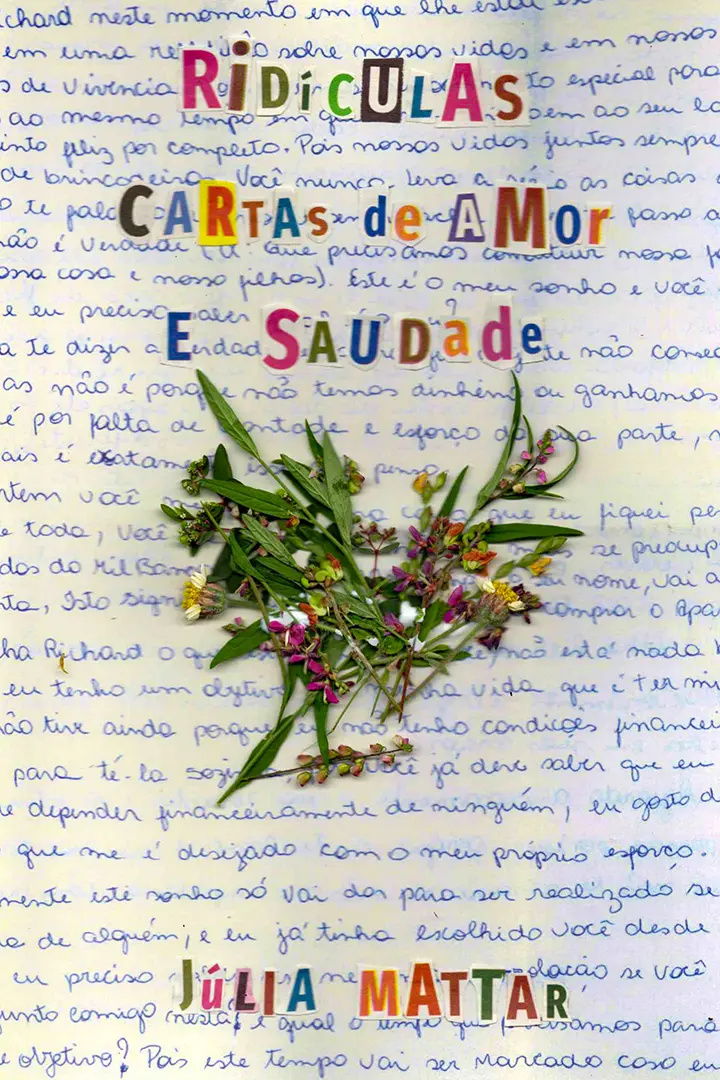 chard neste momento em que lhe estou
em uma sobre nossas vidas e em nossos
RIDÍCULAS
s de vivência to especial para
ao mesmo tempo em bem ao seu la
into feliz por completo. Pois nossas vidas juntos sempre
de brincadeiras. Você nunca leva a as coisas
CARTAS de AMOR
o te passo a
não é verdade que precisamos construir nossa
ossa casa e nossos filhos). Este é o meu sonho e você
e eu preciso saber
E SAUDADE
a te dizer a verdad te não conse
as não é porque não temos dinheiro ou ganhamos
é por falta de vontade e esforço da sua parte,
ais é exatam penso
ntem você
e toda, você na casa que eu fiquei pe
mais se preocup
dos do Mil Ban nome, vai a
ta, Isto sign comprar o Apa
ha Richard o que não está nada
eu tenho um objetivo na vida que é ter mi
ão tive ainda porque eu não tenho condições financei
para tê-la sozi você já deve saber que eu
e depender financeiramente de ninguém, eu gosto d
que me é desejado com o meu próprio esforço.
mente este sonho só vai dar para ser realizado se
a de alguém, e eu já tinha escolhido você desde
eu preciso olação se você
JÚLIA MATTAR
junto comigo nesta, e qual o tempo que precisamos para
e objetivo? Pois este tempo vai ser marcado caso eu